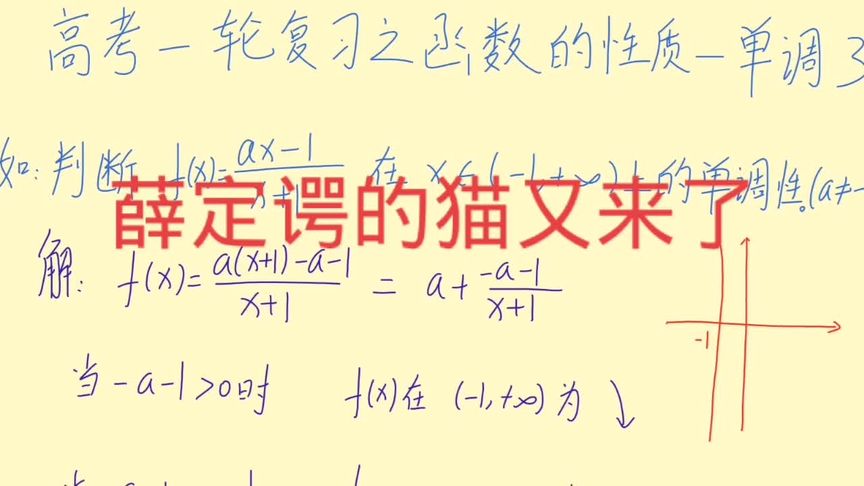 高考一轮复习之函数的性质—单调3
如:判断 f(x)=(ax-1)/(x+1) 在 x∈(-1,+∞)上的单调性。(a≠-
薛定谔的猫又来了
解: f(x)=(a(x+1)-a-1)/(x+1) = a+(-a-1)/(x+1)
-1
当-a-1>0时 f(x)在 (-1,+∞)为↘